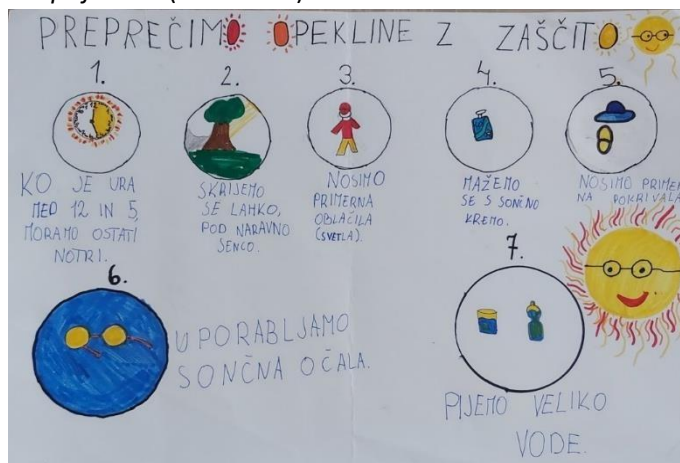 PREPREČIMO OPEKLINE Z ZAŠČITO
1.
KO JE URA
MED 12 IN 5,
MORAMO OSTATI
NOTRI.
2.
SKRIJEMO
SE LAHKO,
POD NARAVNO
SENCO.
3.
NOSIMO
PRIMERNA
OBLAČILA
(SVETLA).
4.
MAŽEMO
SE S SONČNO
KREMO.
5.
NOSIMO PRIMER
NA POKRIVALA
6.
UPORABLJAMO
SONČNA OČALA.
7.
PIJEMO VELIKO
VODE.